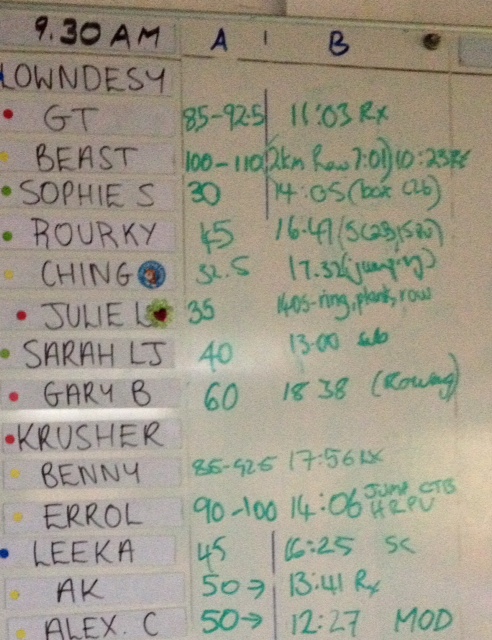 9.30 AM A B
LOWNDESY
GT 85-92.5 11:03 Rx
BEAST 100-110 (2km Row 7:01) 10:23 Rx
SOPHIE S 30 14:05 (box
ROURKY 45 16.49
CHING 52.5 17.37 (jumping)
JULIE L 35 1405-ring, plank, row
SARAH LJ 40 13:00 sub
GARY B 60 18 38 (Rowing)
KRUSHER
BENNY 85-92.5 17:56 Rx
ERROL 90-100 14:06 JUMP CTB
HRPU
LEEKA 45 16:25 SC
AK 50→ 13:41 Rx
ALEX. C 50→ 12:27 MOD